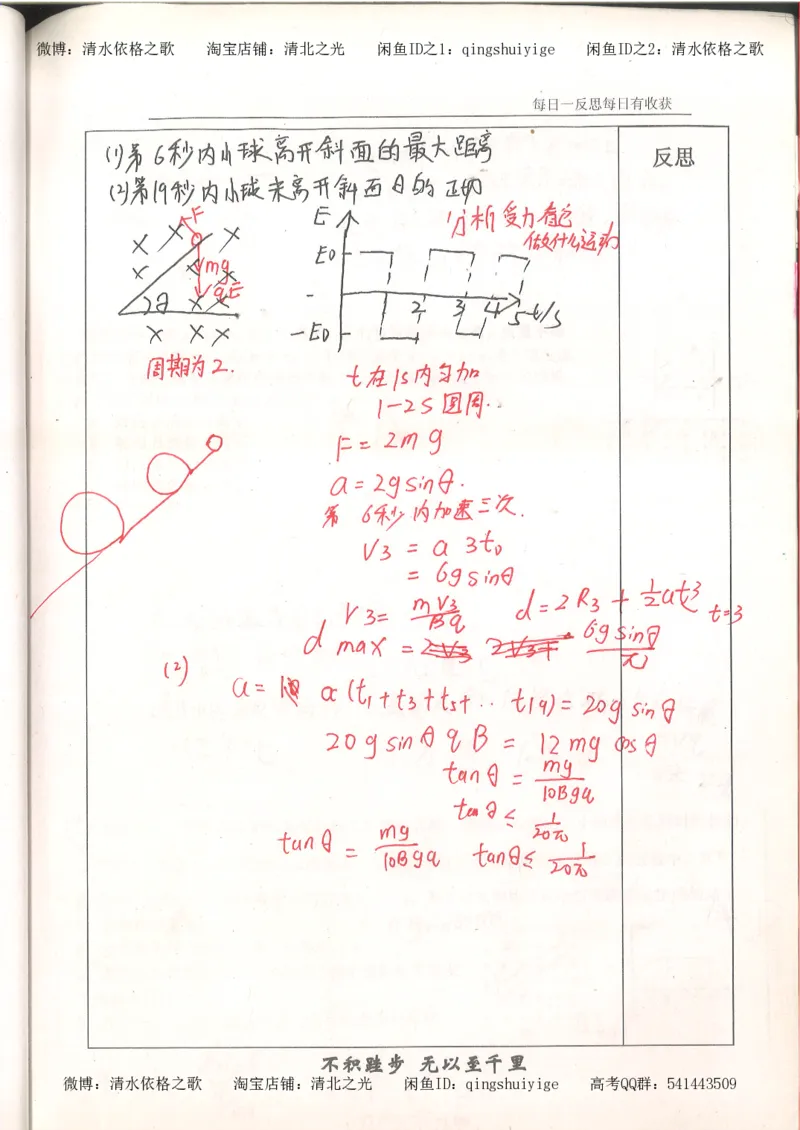 微博：清水依格之歌 淘宝店铺：清北之光 闲鱼ID之1：qingshuiyige 闲鱼ID之2：清水依格之歌
每日一反思每日有收获
(1)第6秒内小球离开斜面的最大距离
反思
(2)第19秒内小球未离开斜面θ的正切
分析受力看它
做什么运动
F
mg
qE
θ
E
E0
-E0
2 3 4 5 t/s
周期为2.
t在1s内匀加
1-2S圆周.
F=2mg
a=2gsinθ.
第6秒内加速三次.
V3 = a 3t0
= 6gsinθ
V3= mV3/Bq d=2R3+½at² t=3
dmax = 6gsinθ/π
(2)
a= a(t1+t3+t5+..t19)=20gsinθ
20gsinθqB = 12mgcosθ
tanθ = mg/10Bgq
tanθ≤ 1/20π
tanθ = mg/10Bgq tanθ≤ 1/20π
不积跬步 无以至千里
微博：清水依格之歌 淘宝店铺：清北之光 闲鱼ID：qingshuiyige 高考QQ群：541443509